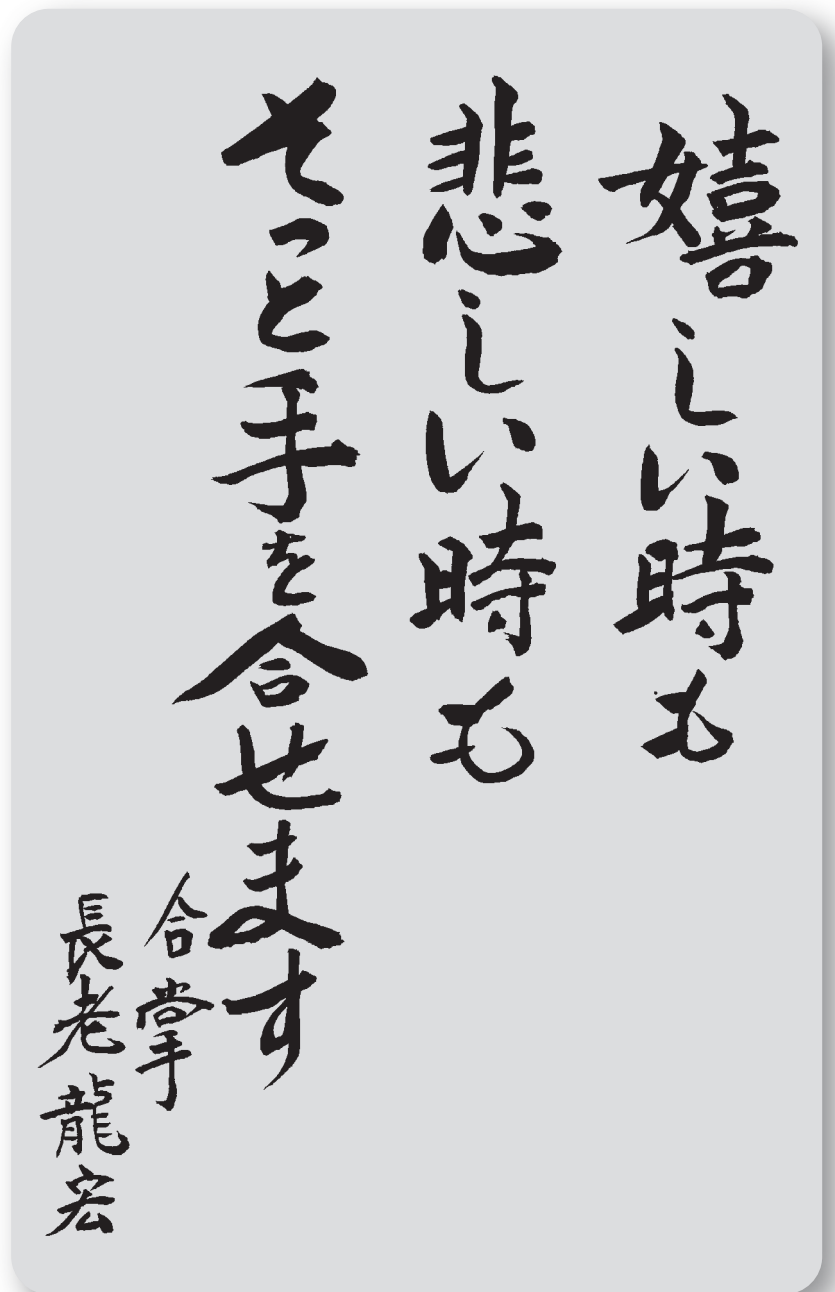 嬉しい時も
悲しい時も
そっと手を合せます
合掌
長老龍宏